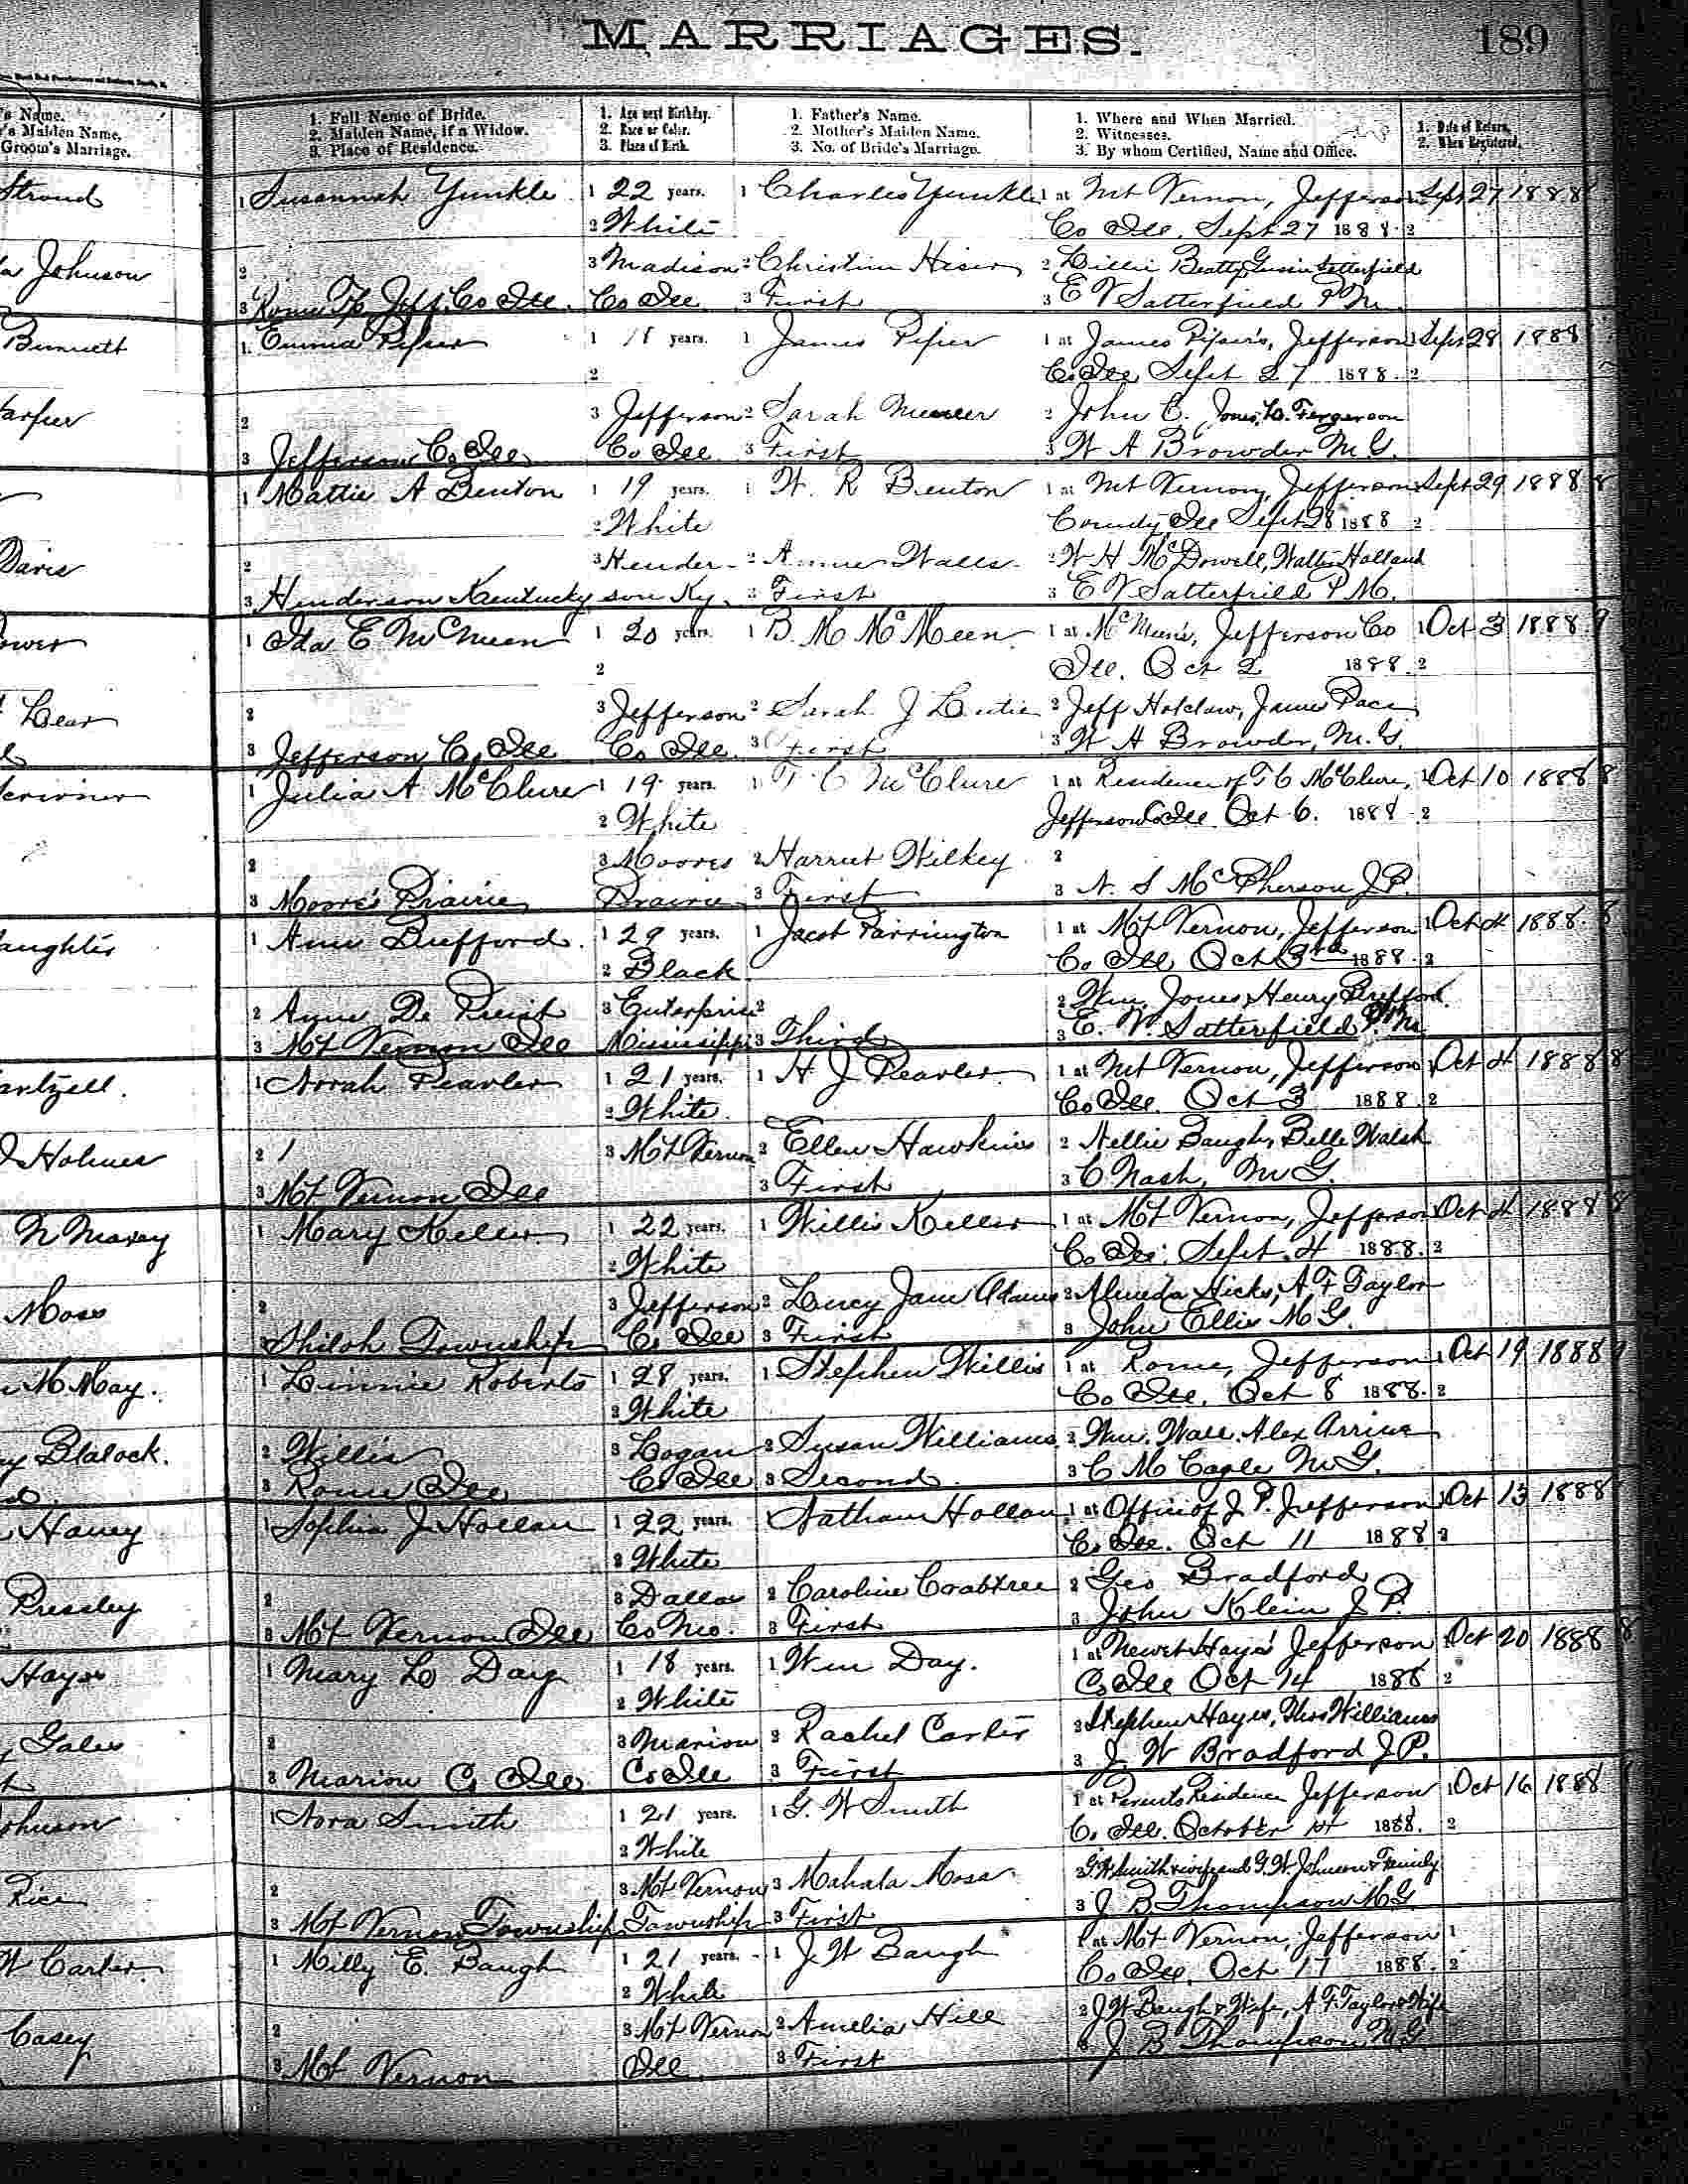 MARRIAGES.
189
's Name.
's Maiden Name.
Groom's Marriage.
1. Full Name of Bride.
2. Maiden Name, if a Widow.
3. Place of Residence.
1. Age next Birthday.
2. Race or Color.
3. Place of Birth.
1. Father's Name.
2. Mother's Maiden Name.
3. No. of Bride's Marriage.
1. Where and When Married.
2. Witnesses.
3. By whom Certified, Name and Office.
1. Date of Return.
2. When Registered.
Stroud
1 Susannah Yunkle 1 22 years. 1 Charles Yunkle 1 at Mt Vernon, Jefferson 1 Sept 27 1888
2 White Co Ill. Sept 27 1888. 2
Johnson
2 3 Madison 2 Christina 2 Lillie Beatty, Satterfield
3 Rome Tp Jeff. Co Ill. Co Ill. 3 First 3 E V Satterfield P M.
Bunnett
1. Emma Pifer 1 18 years. 1 James Pifer 1 at James Pifer's, Jefferson 1 Sept 28 1888
2 Co Ill Sept 27 1888. 2
2 3 Jefferson 2 Sarah 2 John C. Jones, Fergerson
3 Jefferson Co Ill Co Ill. 3 First 3 W A Browder M. G.
1 Mattie A Benton 1 19 years. 1 W. R Benton 1 at Mt Vernon, Jefferson 1 Sept 29 1888
2 White County Ill Sept 28 1888 2
Davis
2 3 Hender- 2 Walls 2 W H McDowell, Walter Holland
3 Henderson Kentucky son Ky. 3 First 3 E V Satterfield P M.
1 Ida E McMeen 1 20 years. 1 B. M McMeen 1 at McMeen's, Jefferson Co 1 Oct 3 1888
2 Ill. Oct 2 1888. 2
Lear
2 3 Jefferson 2 Sarah J 2 Jeff Holclaw, James Pace
3 Jefferson Co Ill Co Ill. 3 First 3 W A Browder, M. G.
Scrivner
1 Julia A McClure 1 19 years. 1 T C McClure 1 at Residence of T C McClure, 1 Oct 10 1888
2 White Jefferson Co Ill Oct 6. 1888. 2
2 3 Moores 2 Harriet Wilkey 2
3 Moore's Prairie Prairie 3 First 3 N. S McPherson J P.
1 Bufford. 1 29 years. 1 Jacob Parrington 1 at Mt Vernon, Jefferson 1 Oct 4 1888.
2 Black Co Ill Oct 3rd 1888. 2
2 De Preist 3 Enterprise 2 2 Wm Jones, Henry Bufford.
3 Mt Vernon Ill Mississippi 3 Third 3 E. V. Satterfield P. M.
1 Norah Pearler 1 21 years. 1 H J Pearler 1 at Mt Vernon, Jefferson 1 Oct 4 1888
2 White. Co Ill. Oct 3 1888. 2
Holmes
2 3 Mt Vernon 2 Ellen Hawkins 2 Nellie Baugh, Belle Walsh
3 Mt Vernon Ill 3 First 3 C Nash, M G.
N Maxey
1 Mary Keller 1 22 years. 1 Willis Keller 1 at Mt Vernon, Jefferson 1 Oct 4 1888
2 White Co Ill. Sept. 4 1888. 2
Moss
2 3 Jefferson 2 Lucy Jane Adams 2 Almeda Hicks, A F Taylor
3 Shiloh Township Co Ill 3 First 3 John Ellis M G.
M May.
1 Linnie Roberts 1 28 years. 1 Stephen Willis 1 at Rome, Jefferson 1 Oct 19 1888
2 White Co Ill. Oct 8 1888. 2
Blalock.
2 Willis 3 Logan 2 Susan Williams 2 Wm. Wall. Alex
3 Rome Ill Co Ill 3 Second 3 C M Cagle M G.
Haney
1 Sophia J Hollan 1 22 years. 1 Nathan Hollan 1 at Office of J. P. Jefferson 1 Oct 13 1888
2 White Co Ill. Oct 11 1888 2
Pressley
2 3 Dallas 2 Caroline Crabtree 2 Geo Bradford
3 Mt Vernon Ill Co Mo. 3 First 3 John Klein J P.
Hays
1 Mary L Day 1 18 years. 1 Wm Day. 1 at Hays' Jefferson 1 Oct 20 1888
2 White Co Ill Oct 14 1888 2
Gales
2 3 Marion 2 Rachel Carter 2 Stephen Hayes, Thos Williams
3 Marion Co Ill Co Ill 3 First 3 J. W Bradford J P.
Johnson
1 Nora Smith 1 21 years. 1 G. W Smith 1 at Parents Residence Jefferson 1 Oct 16 1888
2 White Co Ill. October 14 1888. 2
Rice
2 3 Mt Vernon 2 Mahala Moss 2 G W Smith & wife and G. W. Johnson & Family
3 Mt Vernon Township Township 3 First 3 J B Thompson M G.
W Carter.
1 Milly E. Baugh 1 21 years. 1 J W Baugh 1 at Mt Vernon, Jefferson 1
2 White Co Ill. Oct 17 1888. 2
Casey
2 3 Mt Vernon 2 Amelia Hill 2 J W Baugh & Wife, A F Taylor & Wife
3 Mt Vernon Ill. 3 First 3 J B Thompson M. G.